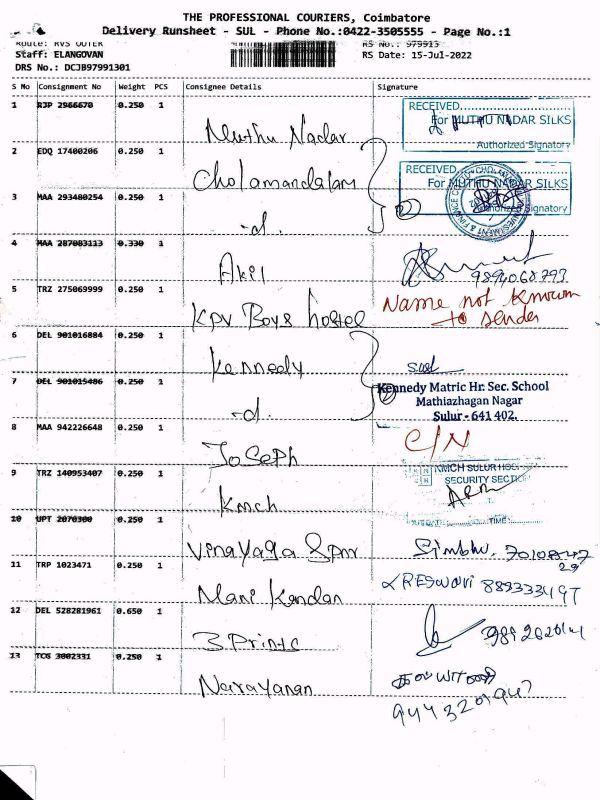 THE PROFESSIONAL COURIERS, Coimbatore
Delivery Runsheet - SUL - Phone No.:0422-3505555 - Page No.:1
Route: RVS OUTER RS No.: 979913
Staff: ELANGOVAN RS Date: 15-Jul-2022
DRS No.: DCJB97991301
S No Consignment No Weight PCS Consignee Details Signature
1 RJP 2966670 0.250 1 Muthu Nadar
RECEIVED
For MUTHU NADAR SILKS
Authorized Signatory
2 EDQ 17400206 0.250 1 Cholamandalam
RECEIVED
For MUTHU NADAR SILKS
Authorized Signatory
3 MAA 293480254 0.250 1 -d.
INVESTMENT & FINANCE
4 MAA 287083113 0.330 1 Akil
5 TRZ 275069999 0.250 1 Kpv Boys hostel
Name not known
to sender
6 DEL 901016884 0.250 1 Kennedy
7 DEL 901015486 0.250 1 -d.
Kennedy Matric Hr. Sec. School
Mathiazhagan Nagar
Sulur - 641 402.
8 MAA 942226648 0.250 1 Joseph C/N
9 TRZ 140953407 0.250 1 Kmch
KMCH SULUR
SECURITY SECTION
DATE: TIME:
10 UPT 2070300 0.250 1 Vinayaga Spm Simbhu.
11 TRP 1023471 0.250 1 Mani Kandan
12 DEL 528281961 0.650 1 3 Prints
13 TCG 3002331 0.250 1 Narayanan
9443201947